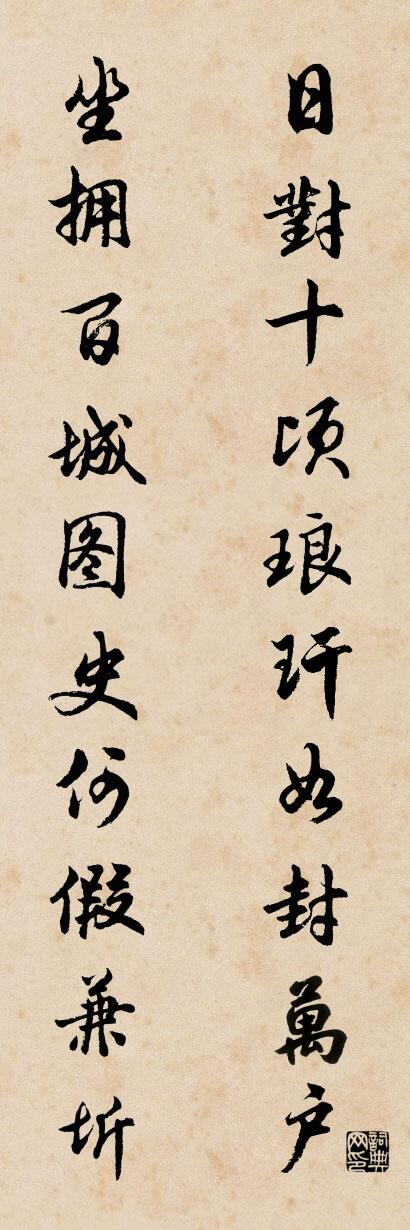 日對十頃琅玕如封萬户
坐拥百城图史何假兼圻
詞典网印